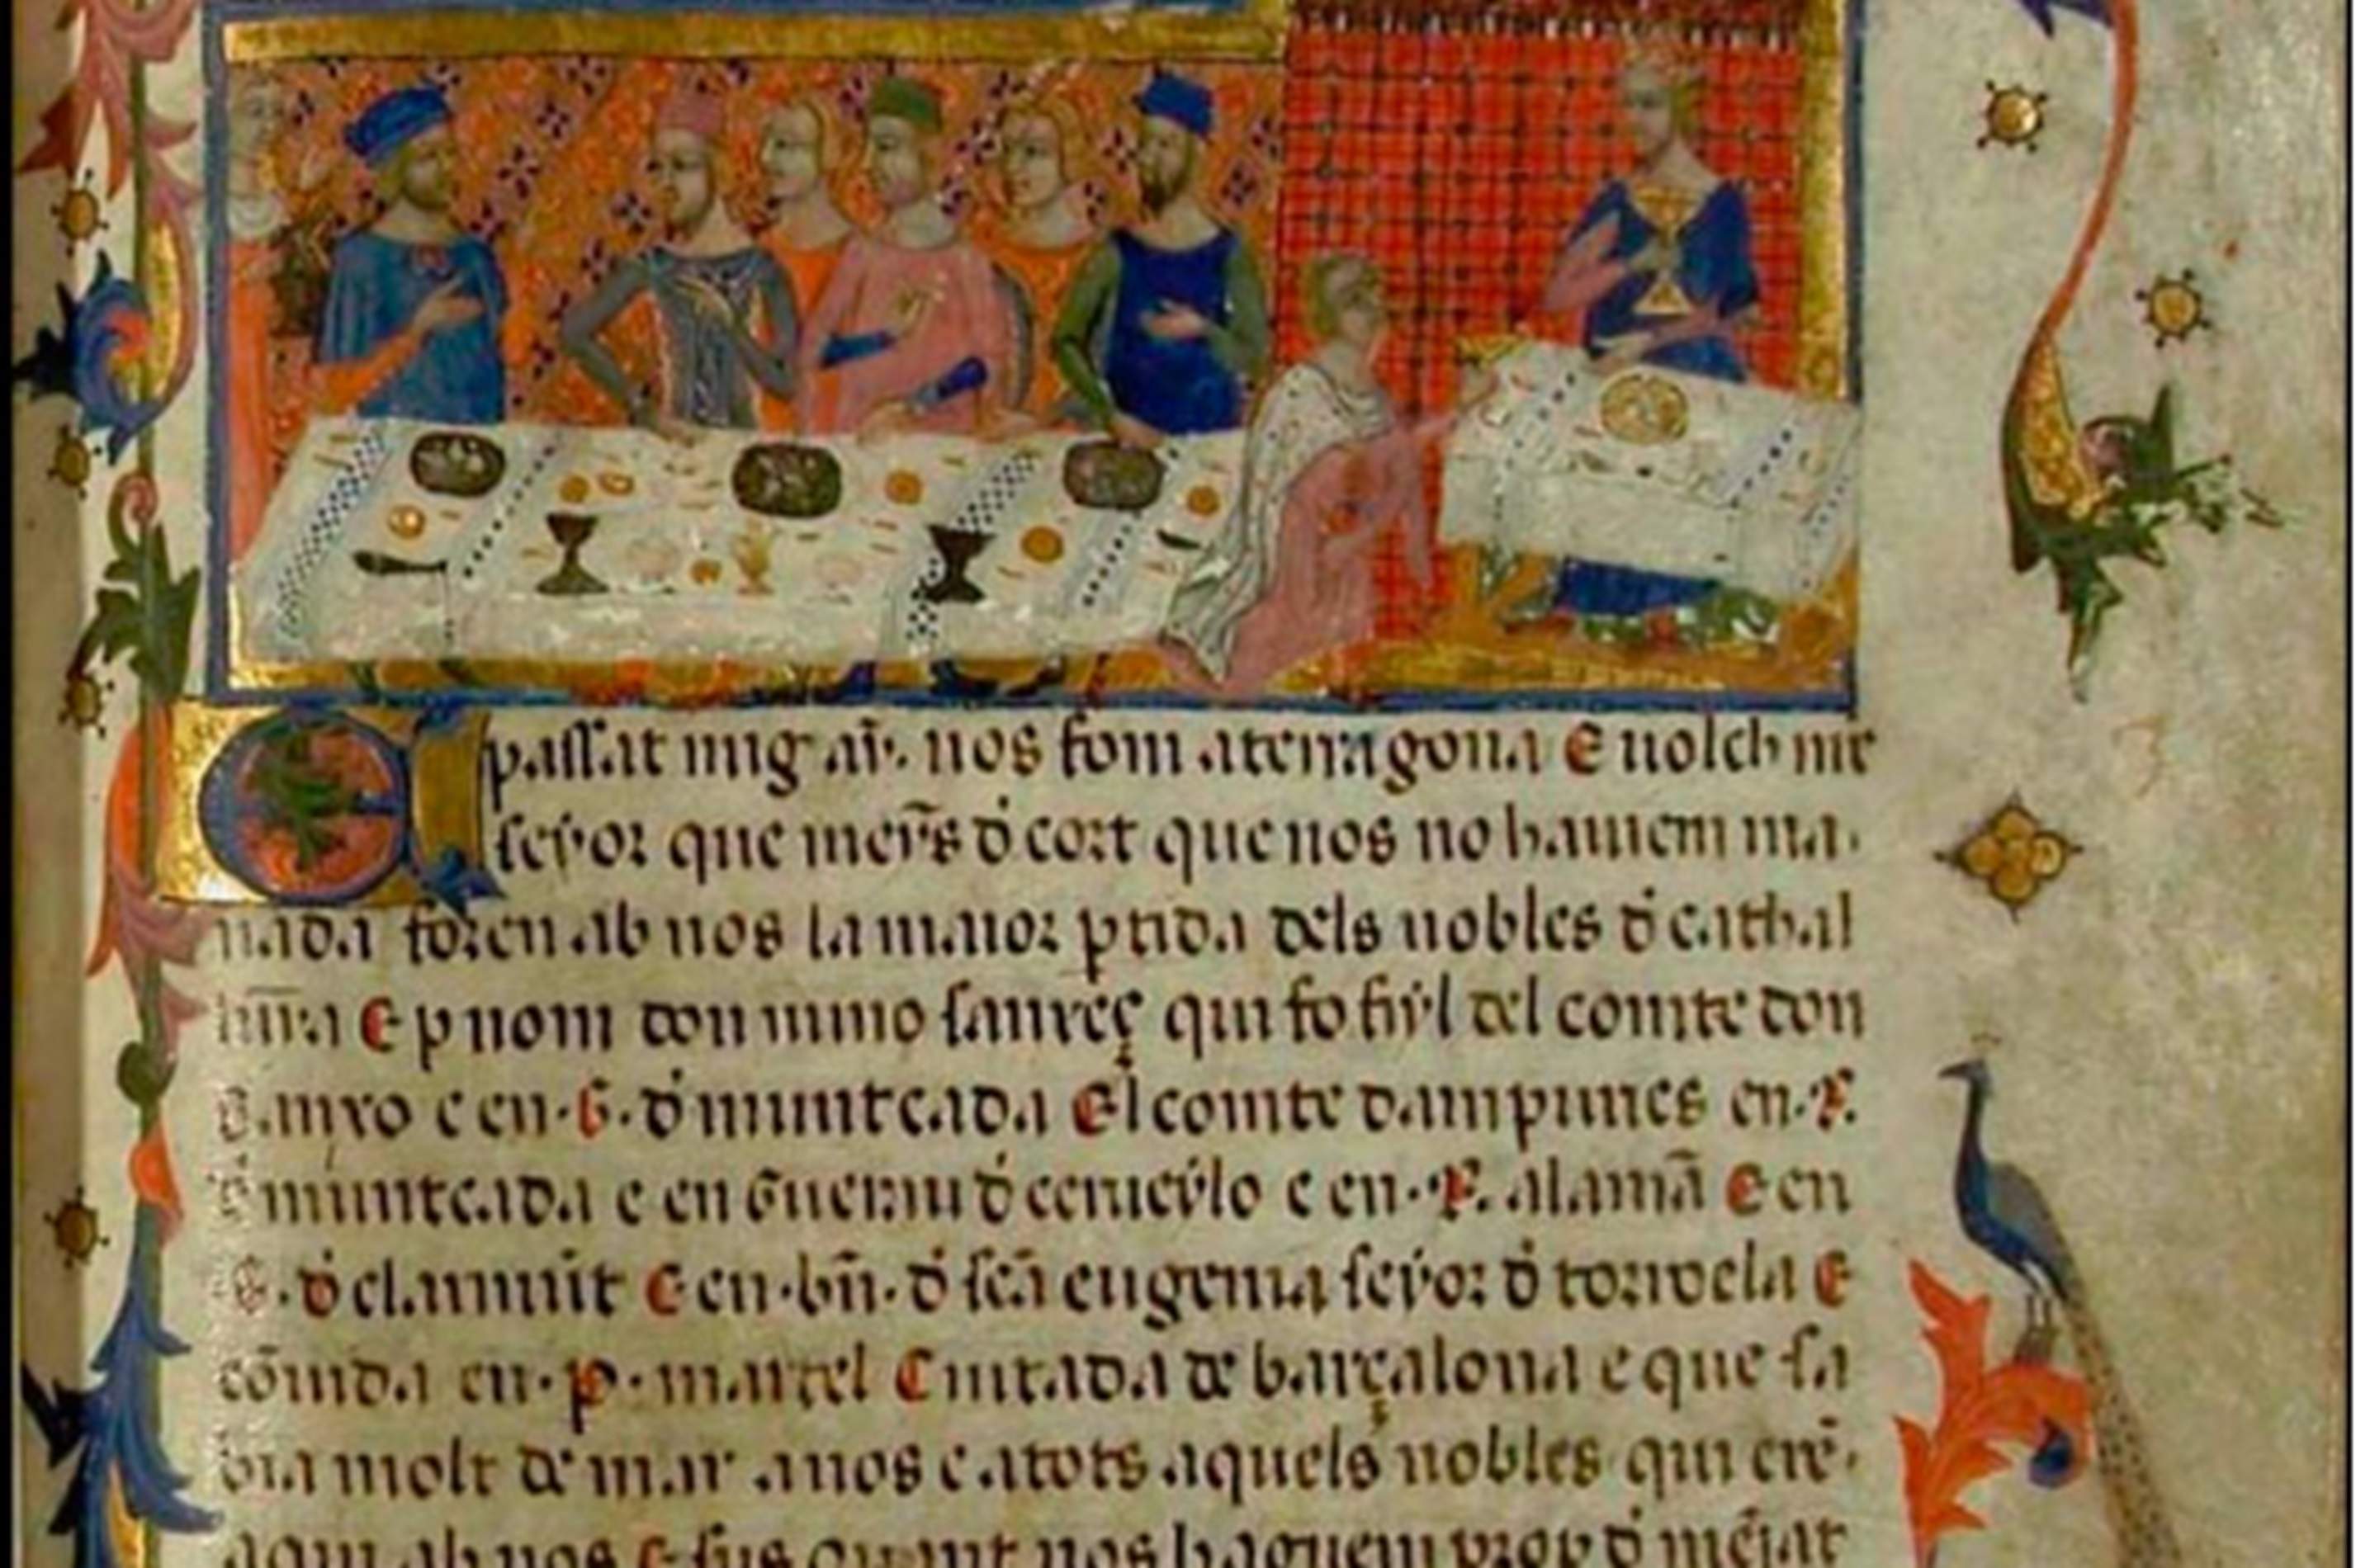 E passat mig añ. nos fom a terragona E uolch nr̃e
seyor que meỹs d cort que nos no hauiem ma
nada foren ab nos la maior ptida dels nobles d cathal
huỹa E p nom don nuno sanxeç qui fo fiyl del comte don
S. anxo e en .G. d muntcada El comte dampuries en .R.
d muntcada e en Gueruu d cerueylo e en .R. alamā E en
.G. d claramūt E en .bñ. d scā eugenia seyor d torroela E
cōuida en .p. martel Ciutada de barçalona e que sa
bia molt de mar a nos e a tots aquels nobles qui erē
aqui ab nos E sus quant nos haguem prop d mējat